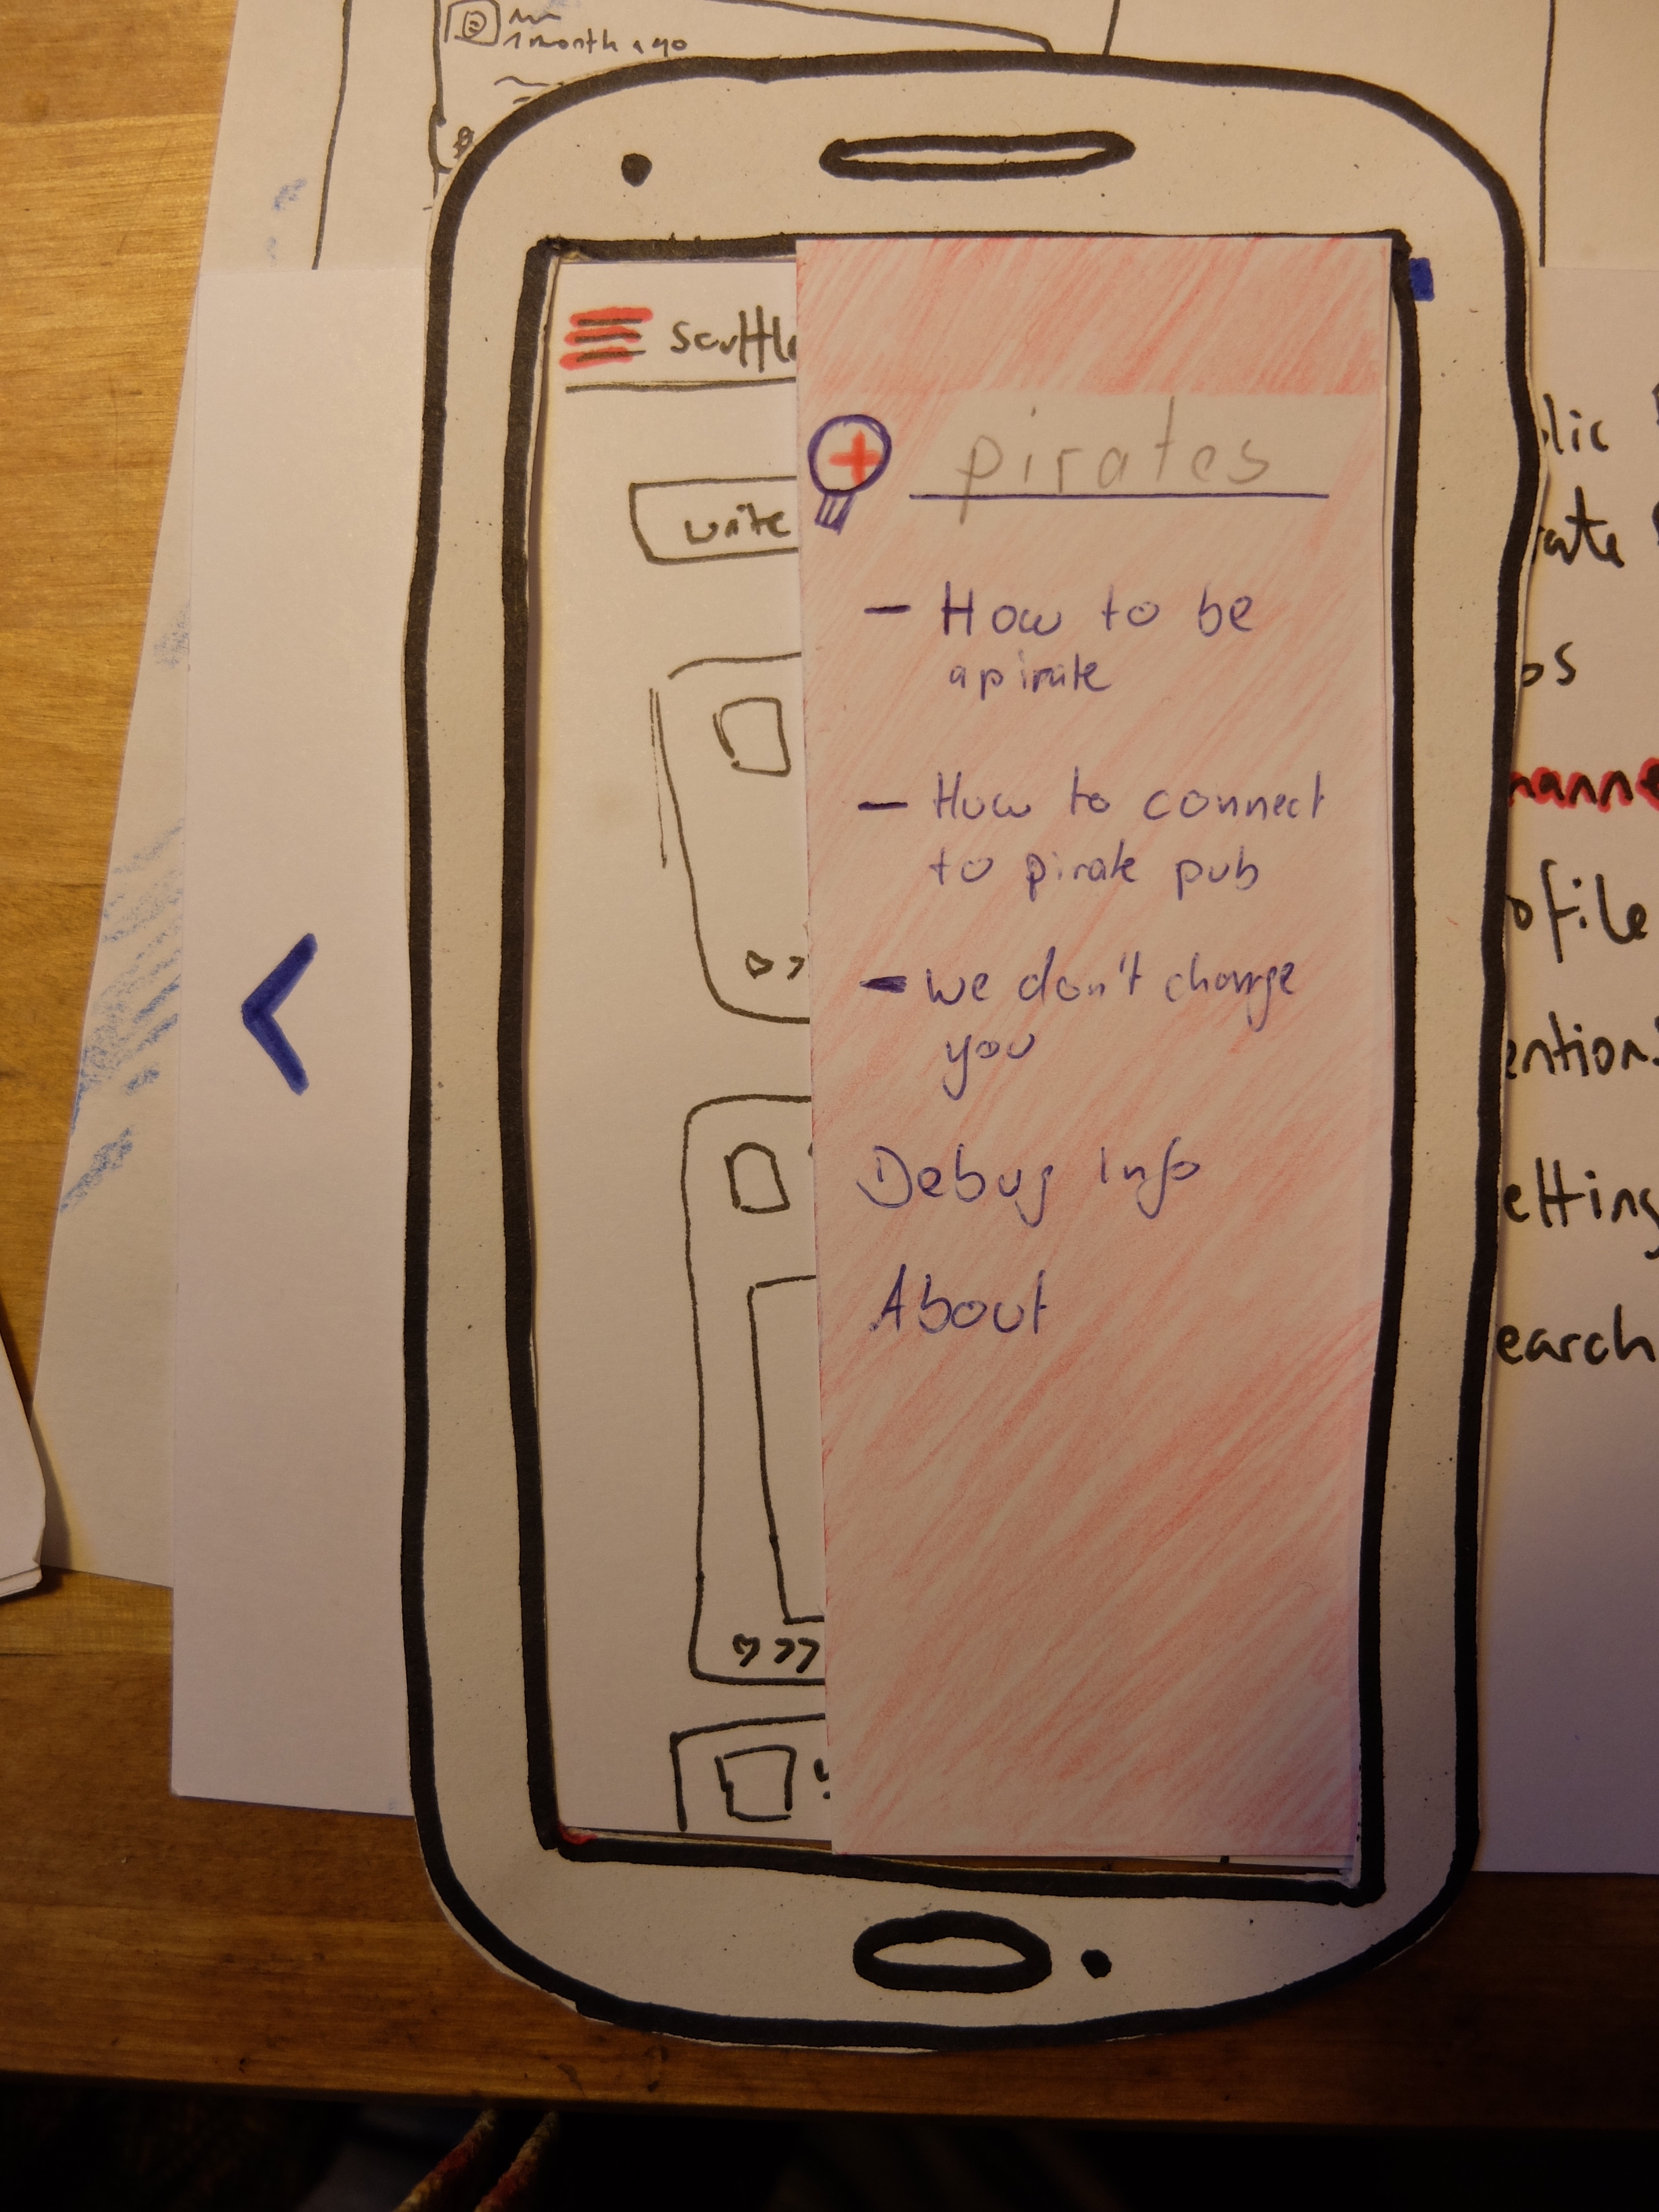 1 month ago
scuttl
write
pirates
- How to be
a pirate
- How to connect
to pirate pub
- we don't charge
you
Debug Info
About
lic
ate
os
hanne
ofile
ention
etting
earch